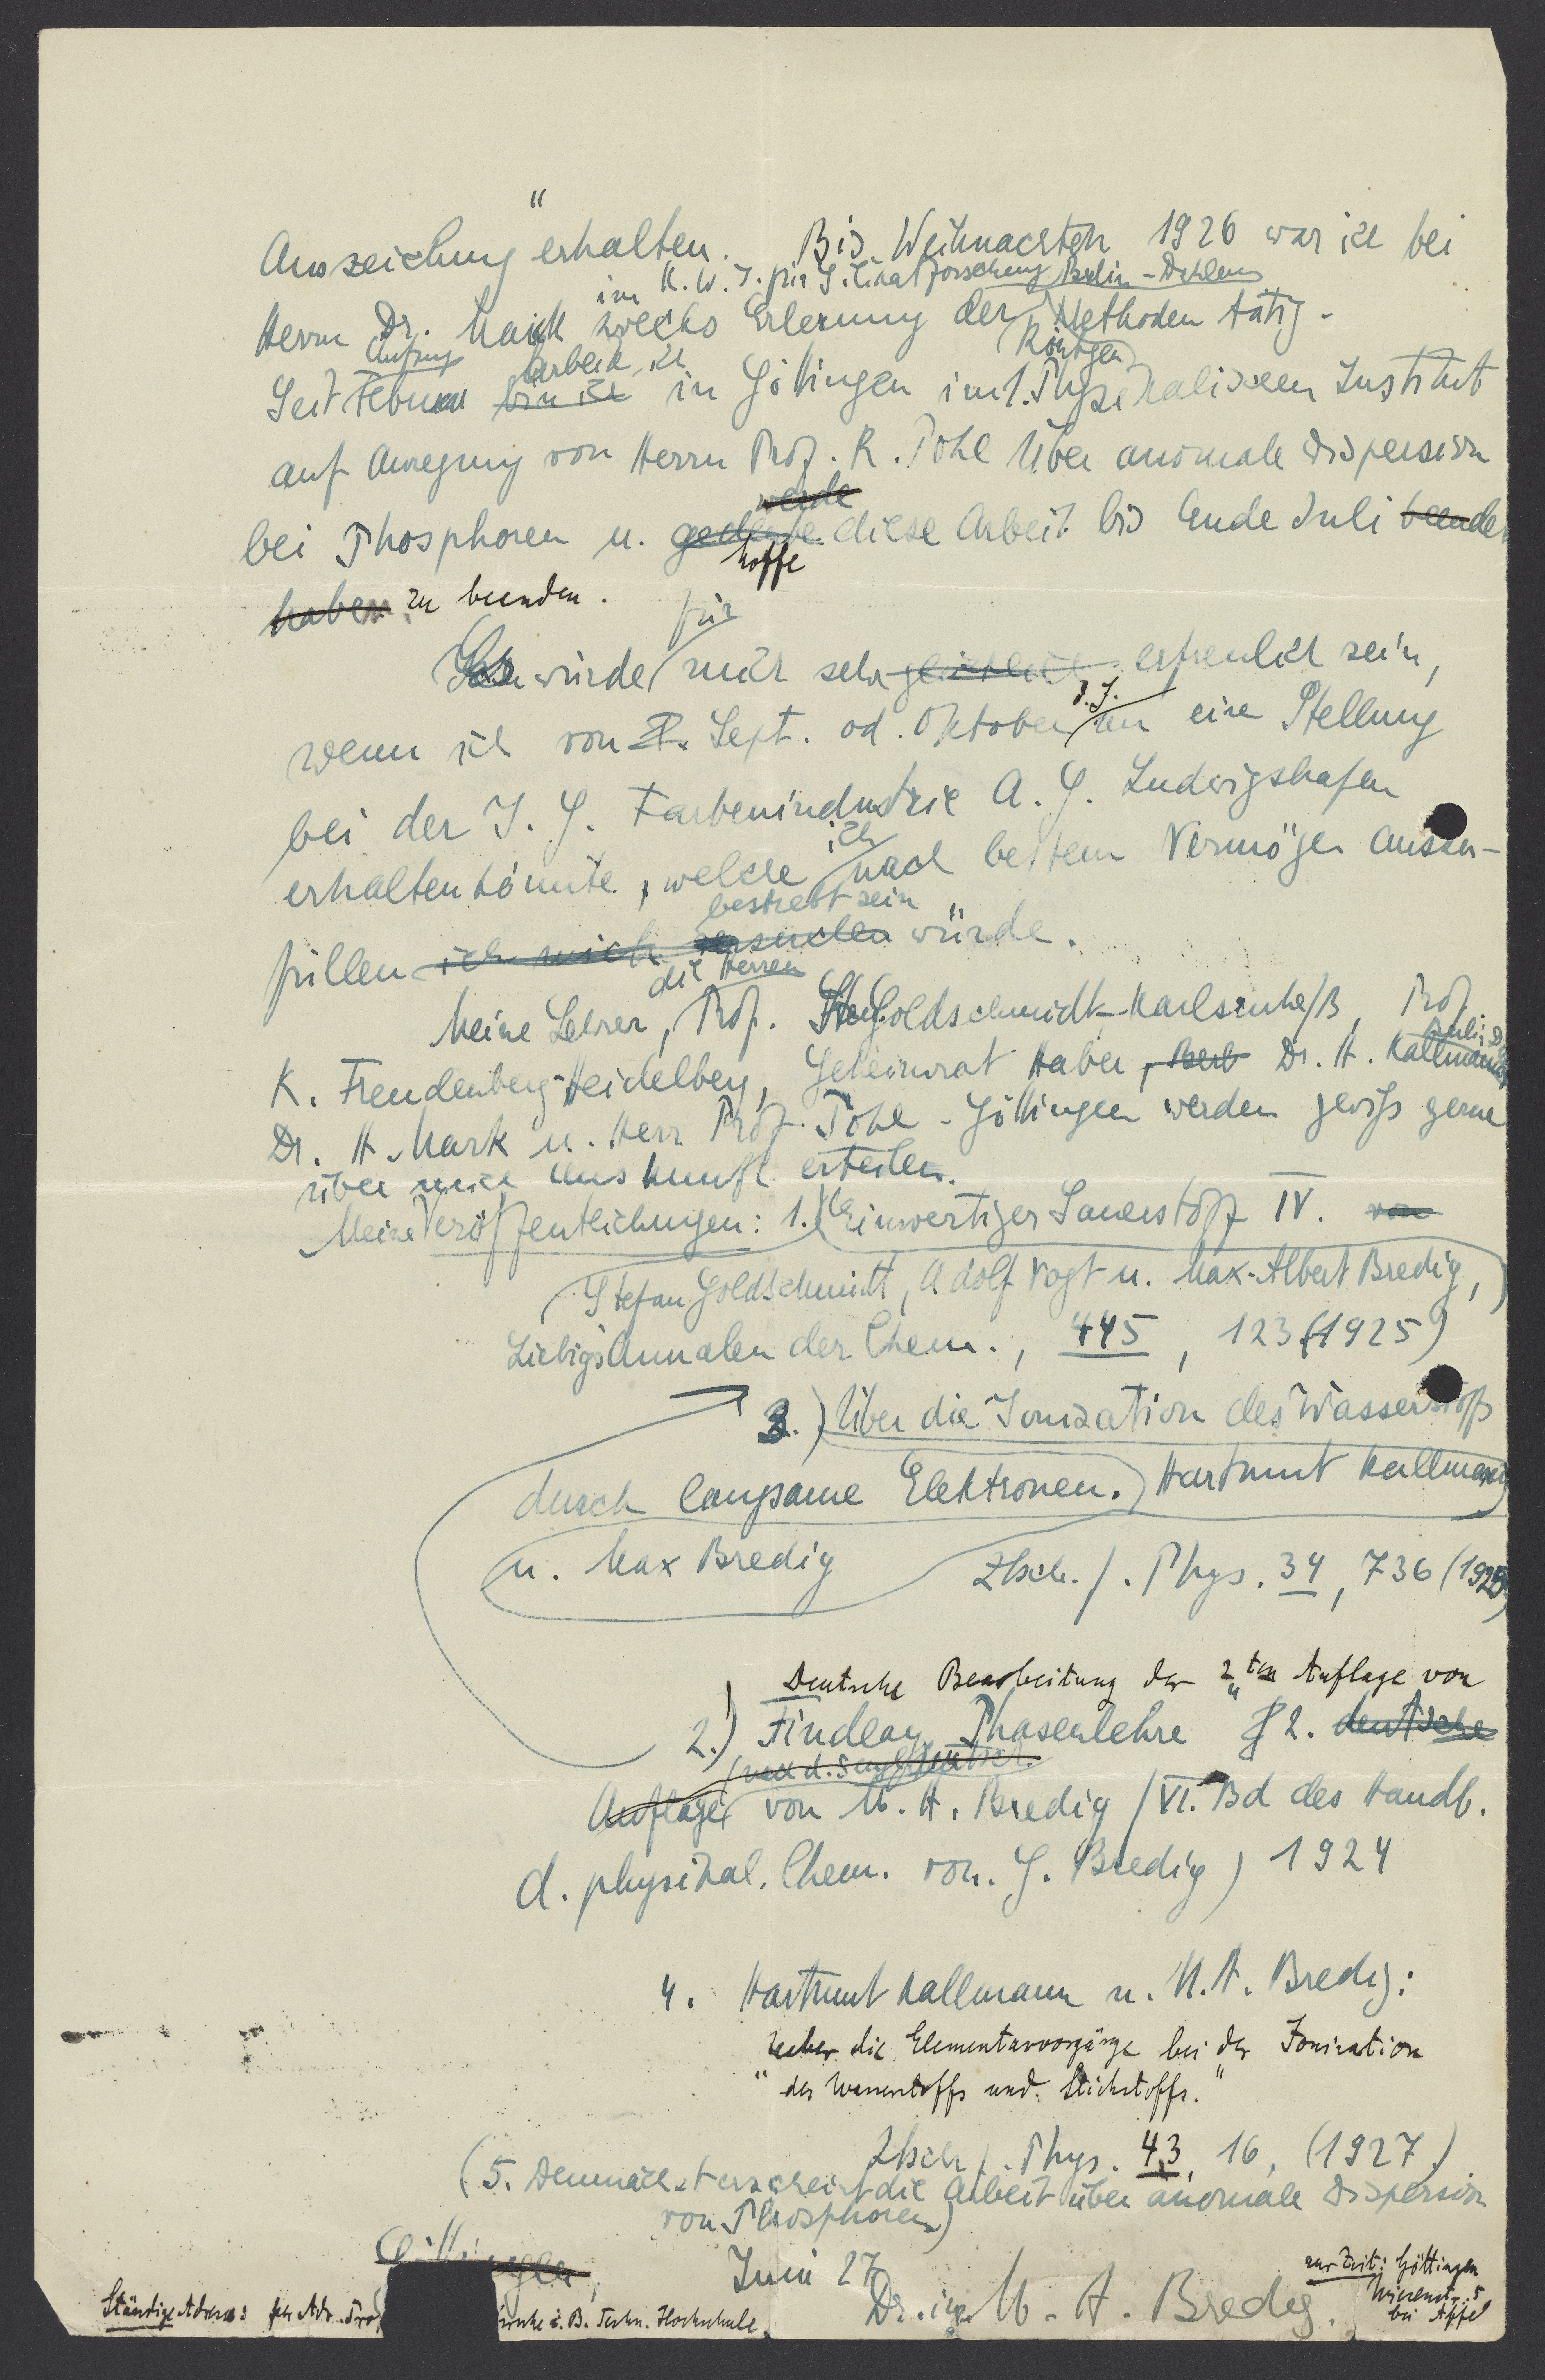 Auszeichung" erhalten. Bis Weihnachten 1926 war ich bei
im K. W. I. für Berlin-Dahlem
Herrn Dr. Mark zwecks Erlernung der Röntgen Methoden tätig.
Anfang arbeite ich
Seit Februar bin ich in Göttingen im 1. Physikalischen Institut
auf Anregung von Herrn Prof. R. Pohl über anomale Dispersion
werde
bei Phosphoren u. gedenke diese Arbeit bis Ende Juli beenden
hoffe
haben zu beenden.
für
würde mich sehr erfreulich sein,
d. J.
wenn ich von Sept. od. Oktober an eine Stellung
bei der I. G. Farbenindustrie A. G. Ludwigshafen
ich
erhalten könnte, welche nach bestem Vermögen auszu-
bestrebt sein
füllen ich mich versuchen würde.
die Herren
Meine Lehrer, Prof. Goldschmidt-Karlsruhe/B, Prof.
K. Freudenberg-Heidelberg, Geheimrat Haber, Berl Dr. H. Kallmann
Dr. H. Mark u. Herr Prof. Pohl-Göttingen werden gewiß gerne
über mich Auskunft erteilen.
Meine Veröffentlichungen: 1.) Einwertiger Sauerstoff IV. von
Stefan Goldschmidt, Adolf Vogt u. Max-Albert Bredig,
Liebigs Annalen der Chem., 445, 123 (1925)
3.) Über die Ionization des Wasserstoffs
durch langsame Elektronen. Hartmut Kallmann
u. Max Bredig Ztsch. f. Phys. 34, 736 (1925)
Deutsche Bearbeitung der 2ten Auflage von
2.) Findlay Phasenlehre 2. deutsche
Auflage von M. A. Bredig (VI. Bd des Handb.
d. physikal. Chem. von. G. Bredig) 1924
4. Hartmut Kallmann u. M. A. Bredig:
Ueber die Elementarvorgänge bei der Ionisation
"des Wasserstoffs und Stickstoffs."
Ztsch f. Phys. 43, 16, (1927)
(5. Demnächst erscheint die Arbeit über anomale Dispersion
von Phosphoren)
Juni 27
Dr. ing. M. A. Bredig.
zur Zeit: Göttingen
bei Apfel
Ständige Adresse: per Adr. Prof i. B. Techn. Hochschule.